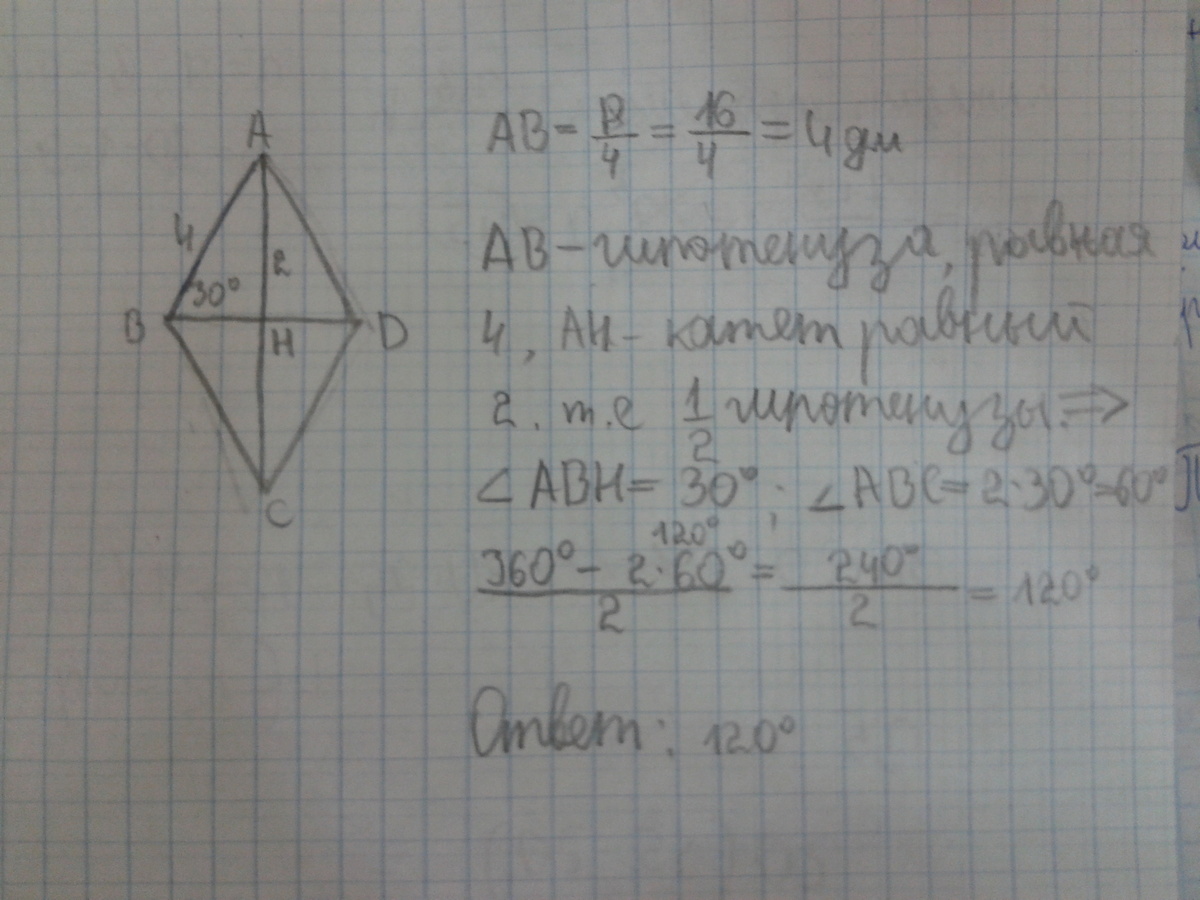 A
4
2
30°
B
H
D
C
AB = P/4 = 16/4 = 4 дм
AB - гипотенуза, равная
4, AH - катет равный
2. т.е 1/2 гипотенузы. ⇒
∠ABH = 30°; ∠ABC = 2·30° = 60°
120°
360° - 2·60° / 2 = 240° / 2 = 120°
Ответ: 120°